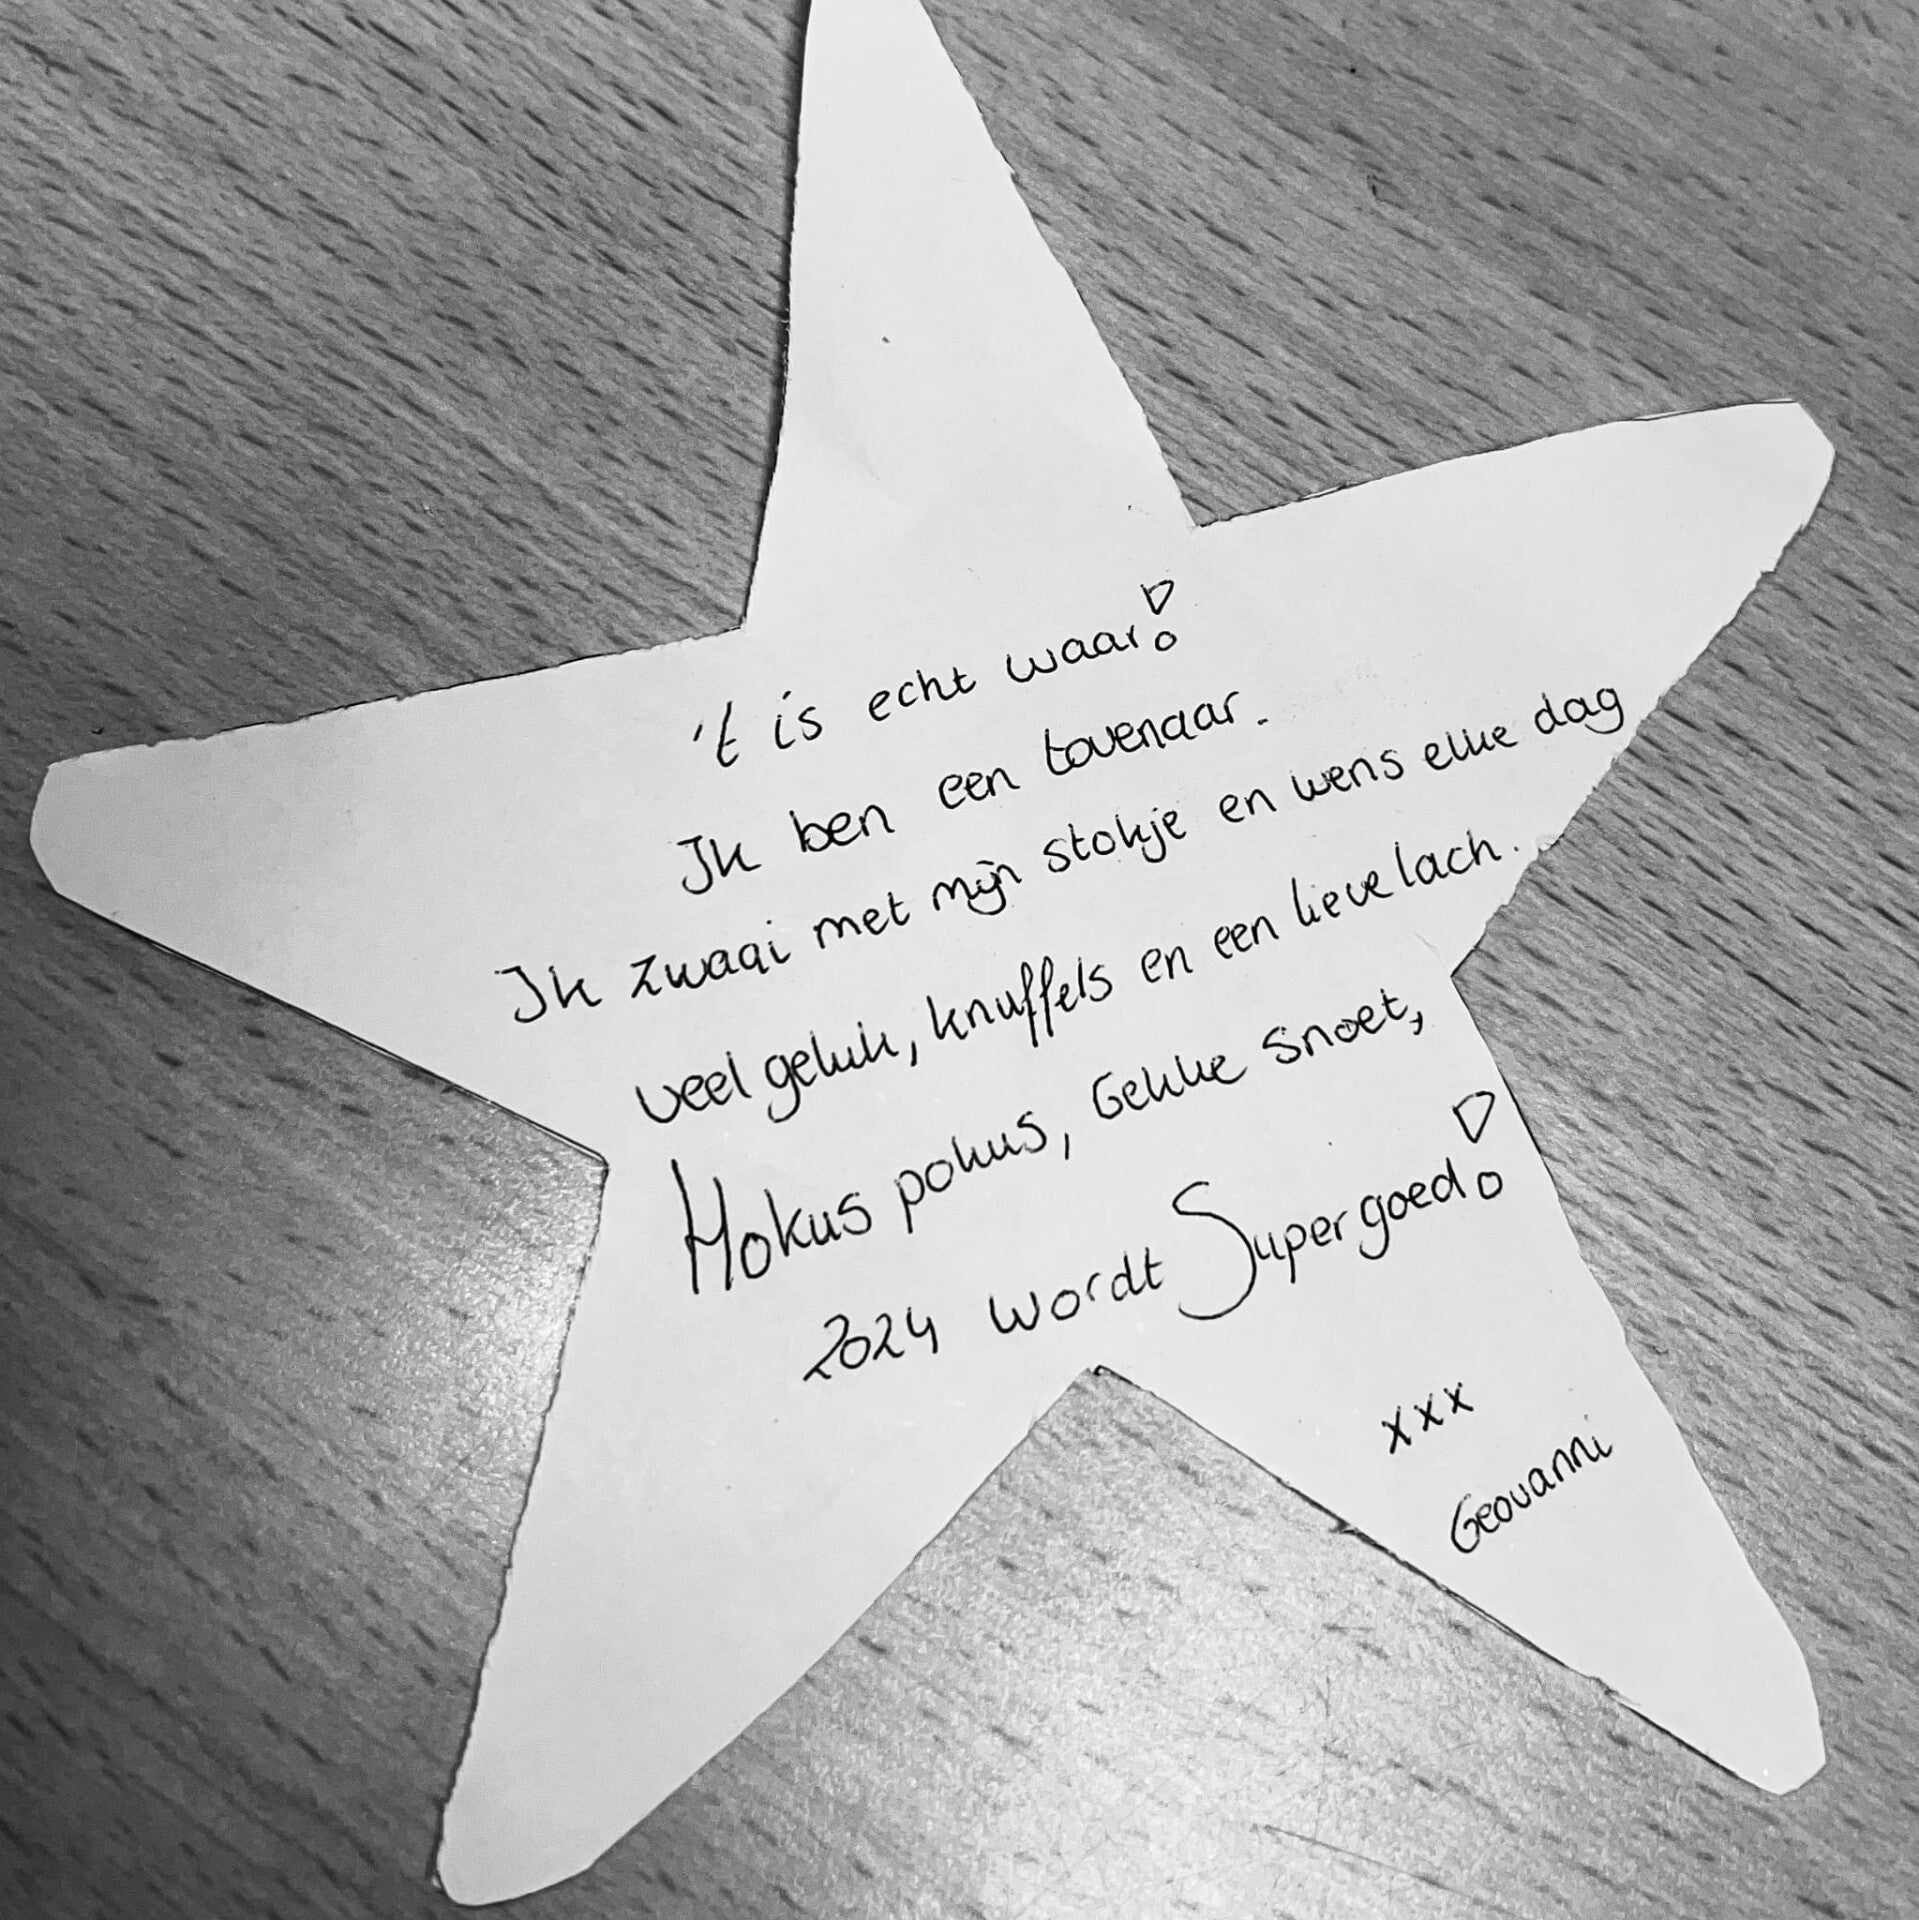 't is echt waar!
Ik ben een tovenaar.
Ik zwaai met mijn stokje en wens elke dag
veel geluk, knuffels en een lieve lach.
Hokus pokus, Gekke snoet,
2024 wordt Supergoed!
xxx
Geovanni